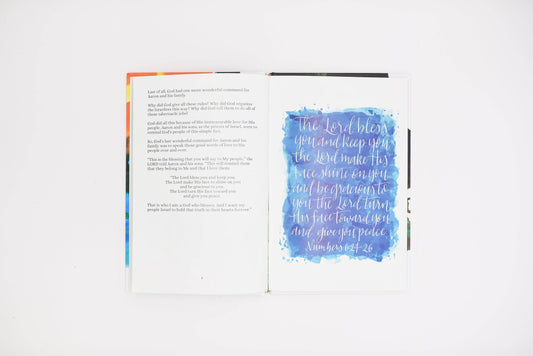 Last of all, God had one more wonderful command for
Aaron and his family.
Why did God give all these rules? Why did God organize
the Israelites this way? Why did God tell them to do all of
these tabernacle jobs?
God did all this because of His immeasurable love for His
people. Aaron and his sons, as the priests of Israel, were to
remind God's people of this simple fact.
So, God's last wonderful command for Aaron and his
family, was to speak these good words of love to His
people over and over.
"This is the blessing that you will say to My people," the
LORD told Aaron and his sons. "This will remind them
that they belong to Me and that I love them.
"The Lord bless you and keep you;
The Lord make His face to shine on you,
and be gracious to you.
The Lord turn His face toward you
and give you peace.
That is who I am: a God who blesses. And I want my
people Israel to hold that truth in their hearts forever."
The Lord bless
you and keep you
the Lord make His
face shine on you
and be gracious to
you the Lord turn
His face toward you
and give you peace.
Numbers 6:24-26